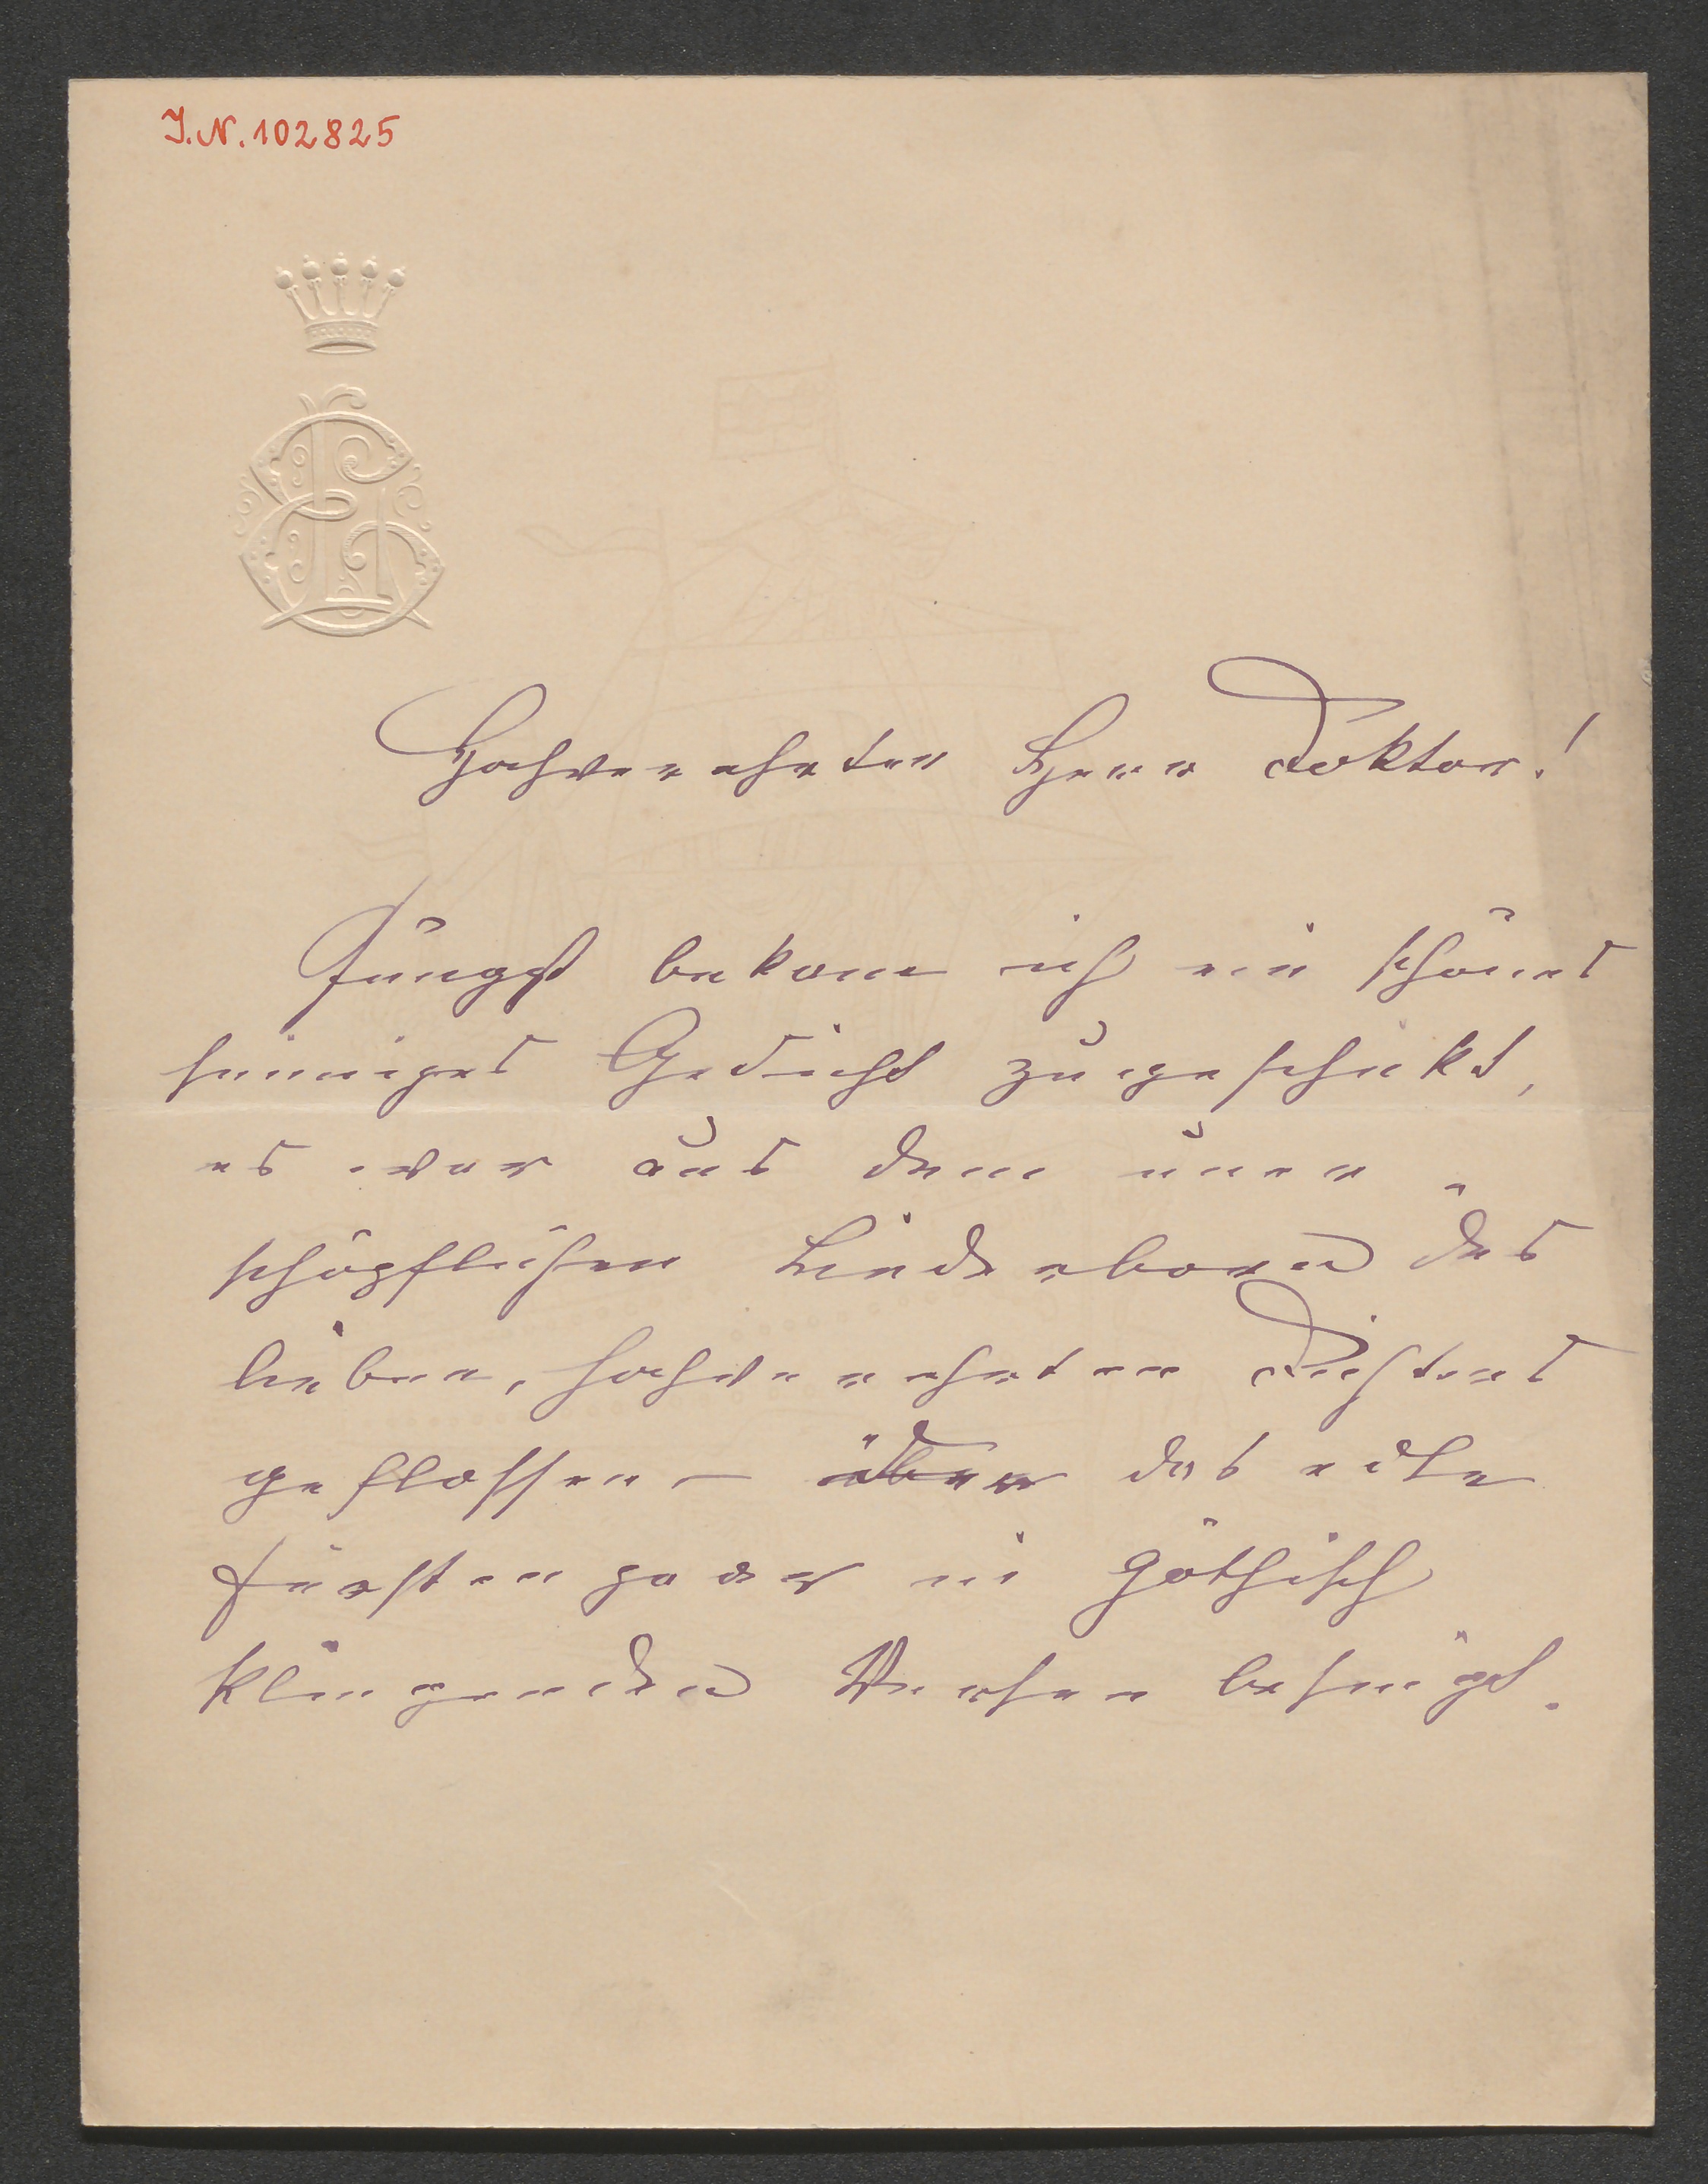 I.N. 102825
Hochverehrter Herr Doktor!
Jüngst bekam ich ein schönes
sinniges Gedicht zugeschikt,
es war aus dem uner-
schöpflichen Liederborn des
lieben, hochverehrten Dichters
geflossen – über das edle
Fürstenpaar in göthisch
klingenden Versen besingt.